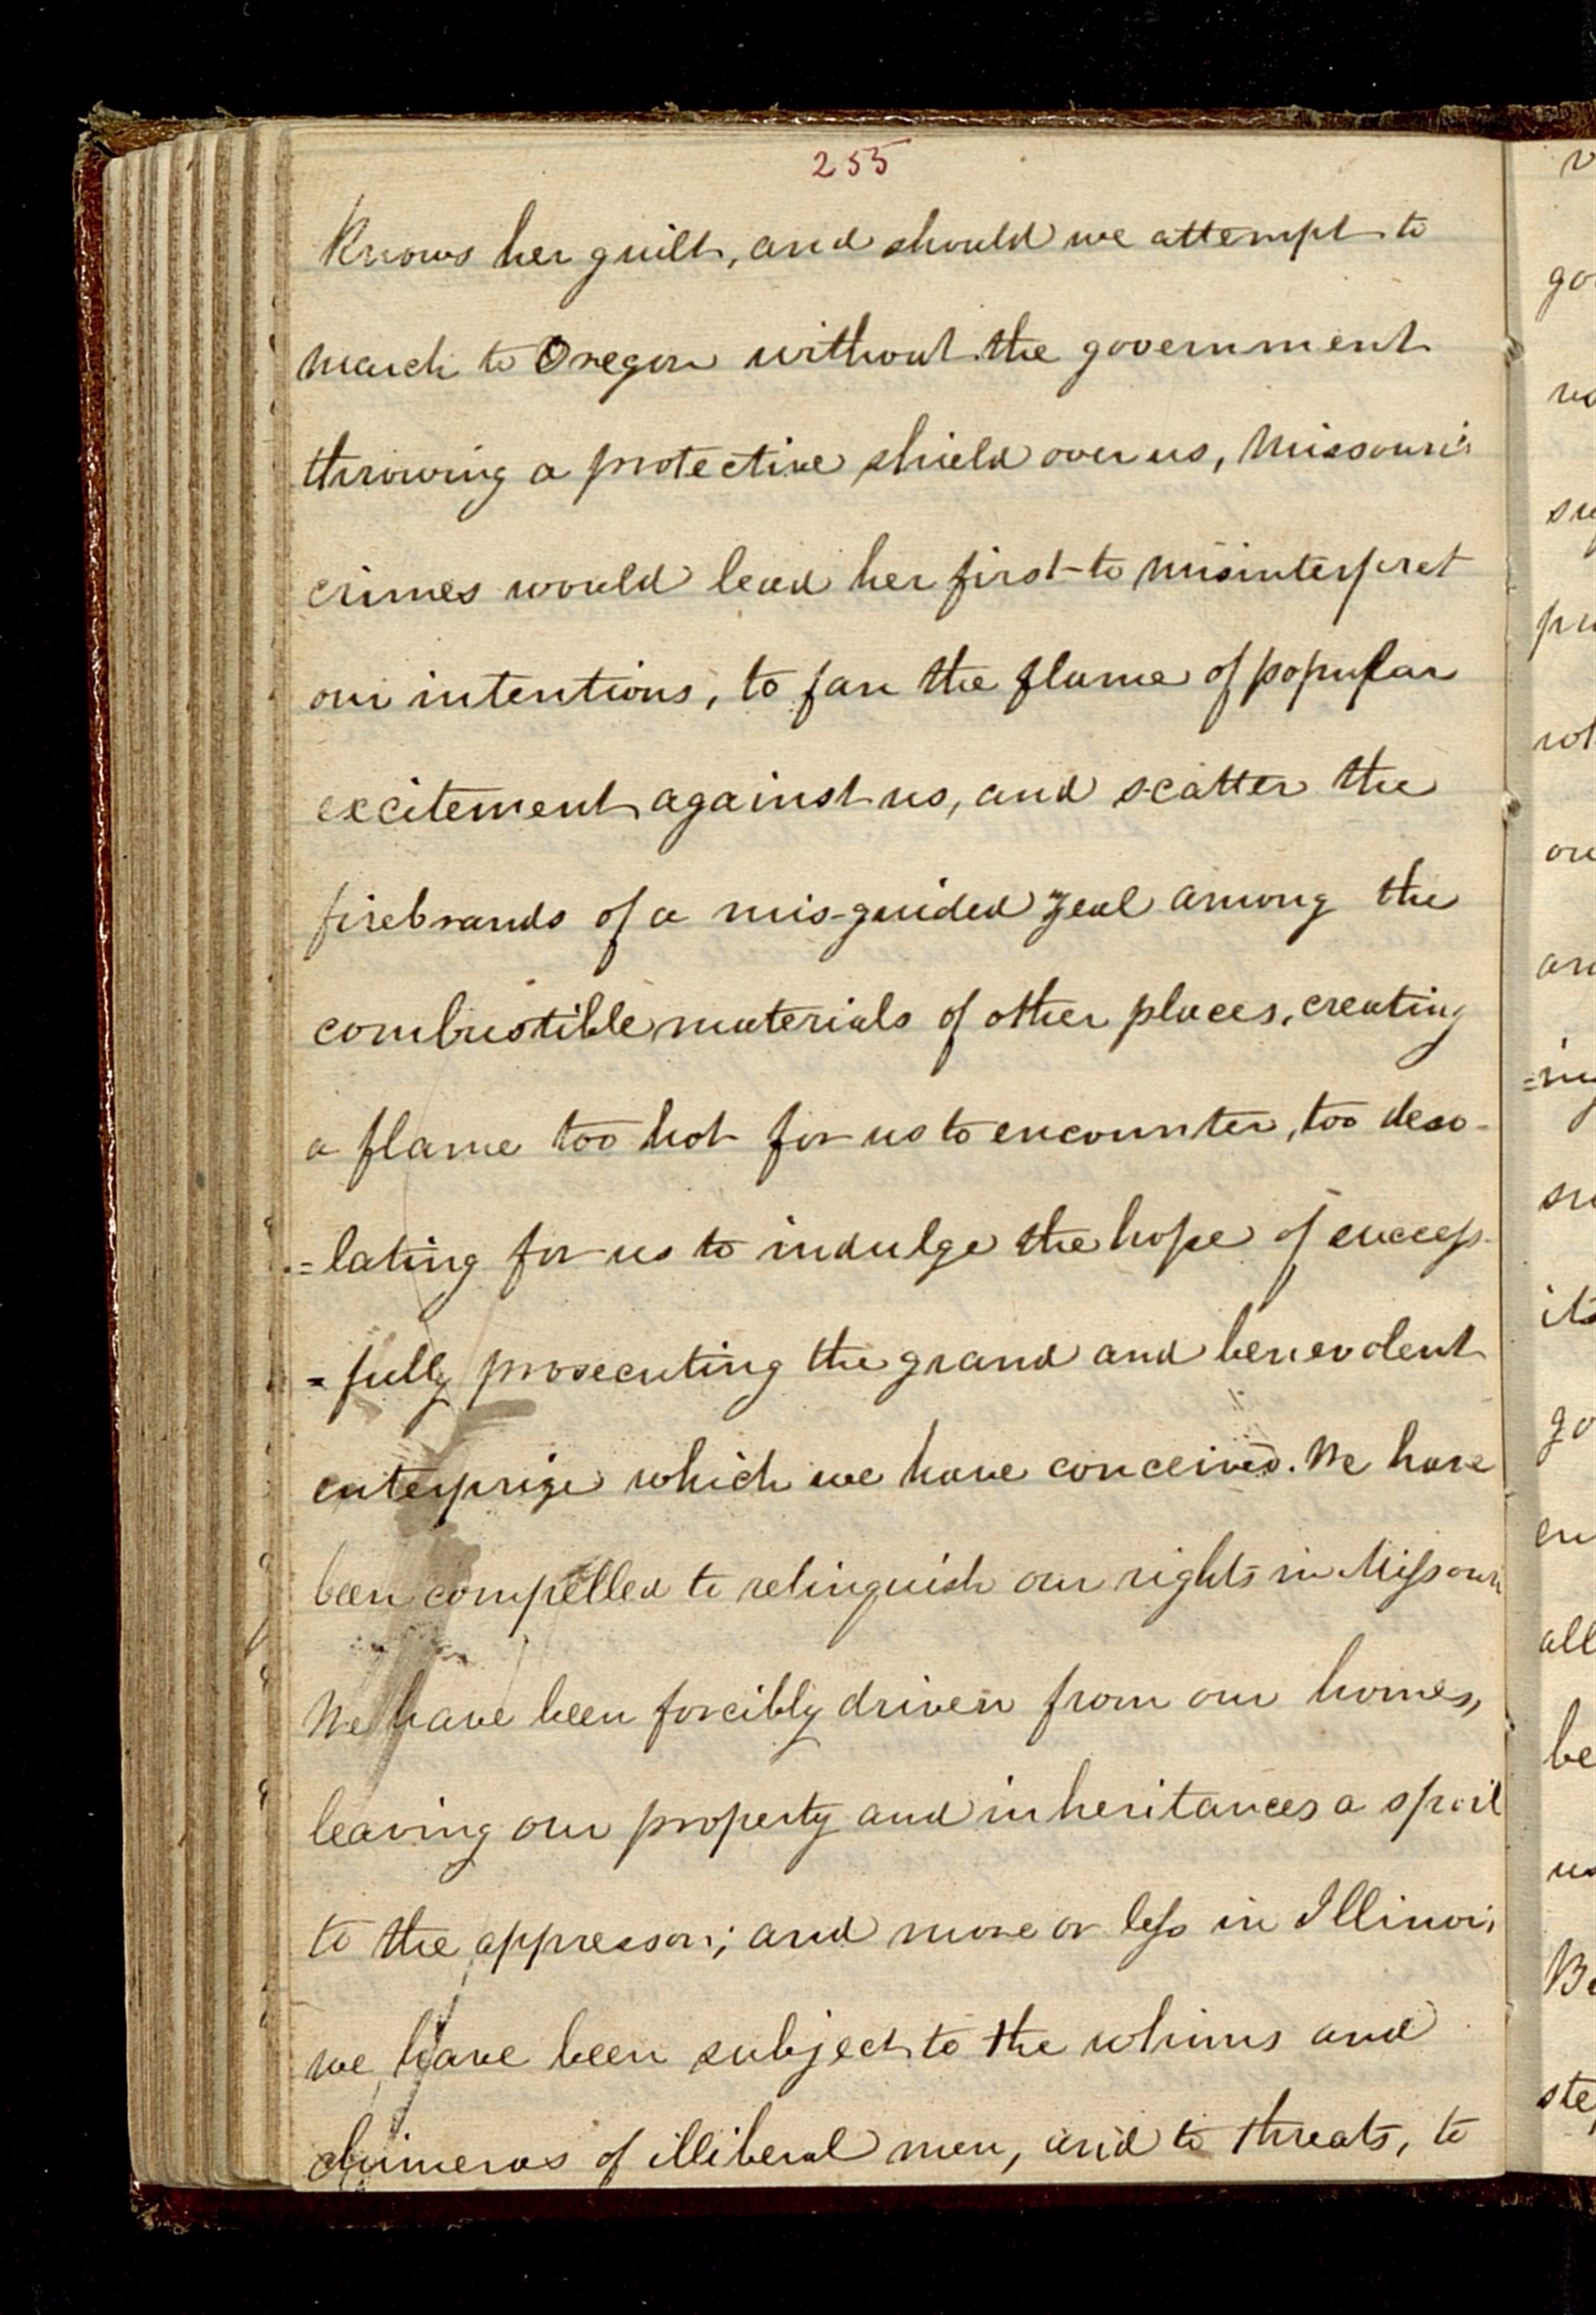 255
Knows her guilt, and should we attempt to
march to Oregon without the government
throwing a protective shield over us, Missouri's
crimes would lead her first to misinterpret
our intentions, to fan the flame of popular
excitement against us, and scatter the
firebrands of a mis-guided zeal among the
combustible materials of other places, creating
a flame too hot for us to encounter, too deso-
=lating for us to indulge the hope of success-
=fully prosecuting the grand and benevolent
enterprize which we have conceived. We have
been compelled to relinquish our rights in Missouri
We have been forcibly driven from our homes,
leaving our property and inheritances a spoil
to the oppressor; and more or less in Illinois
we have been subject to the whims and
chimeras of illiberal men, and to threats, to